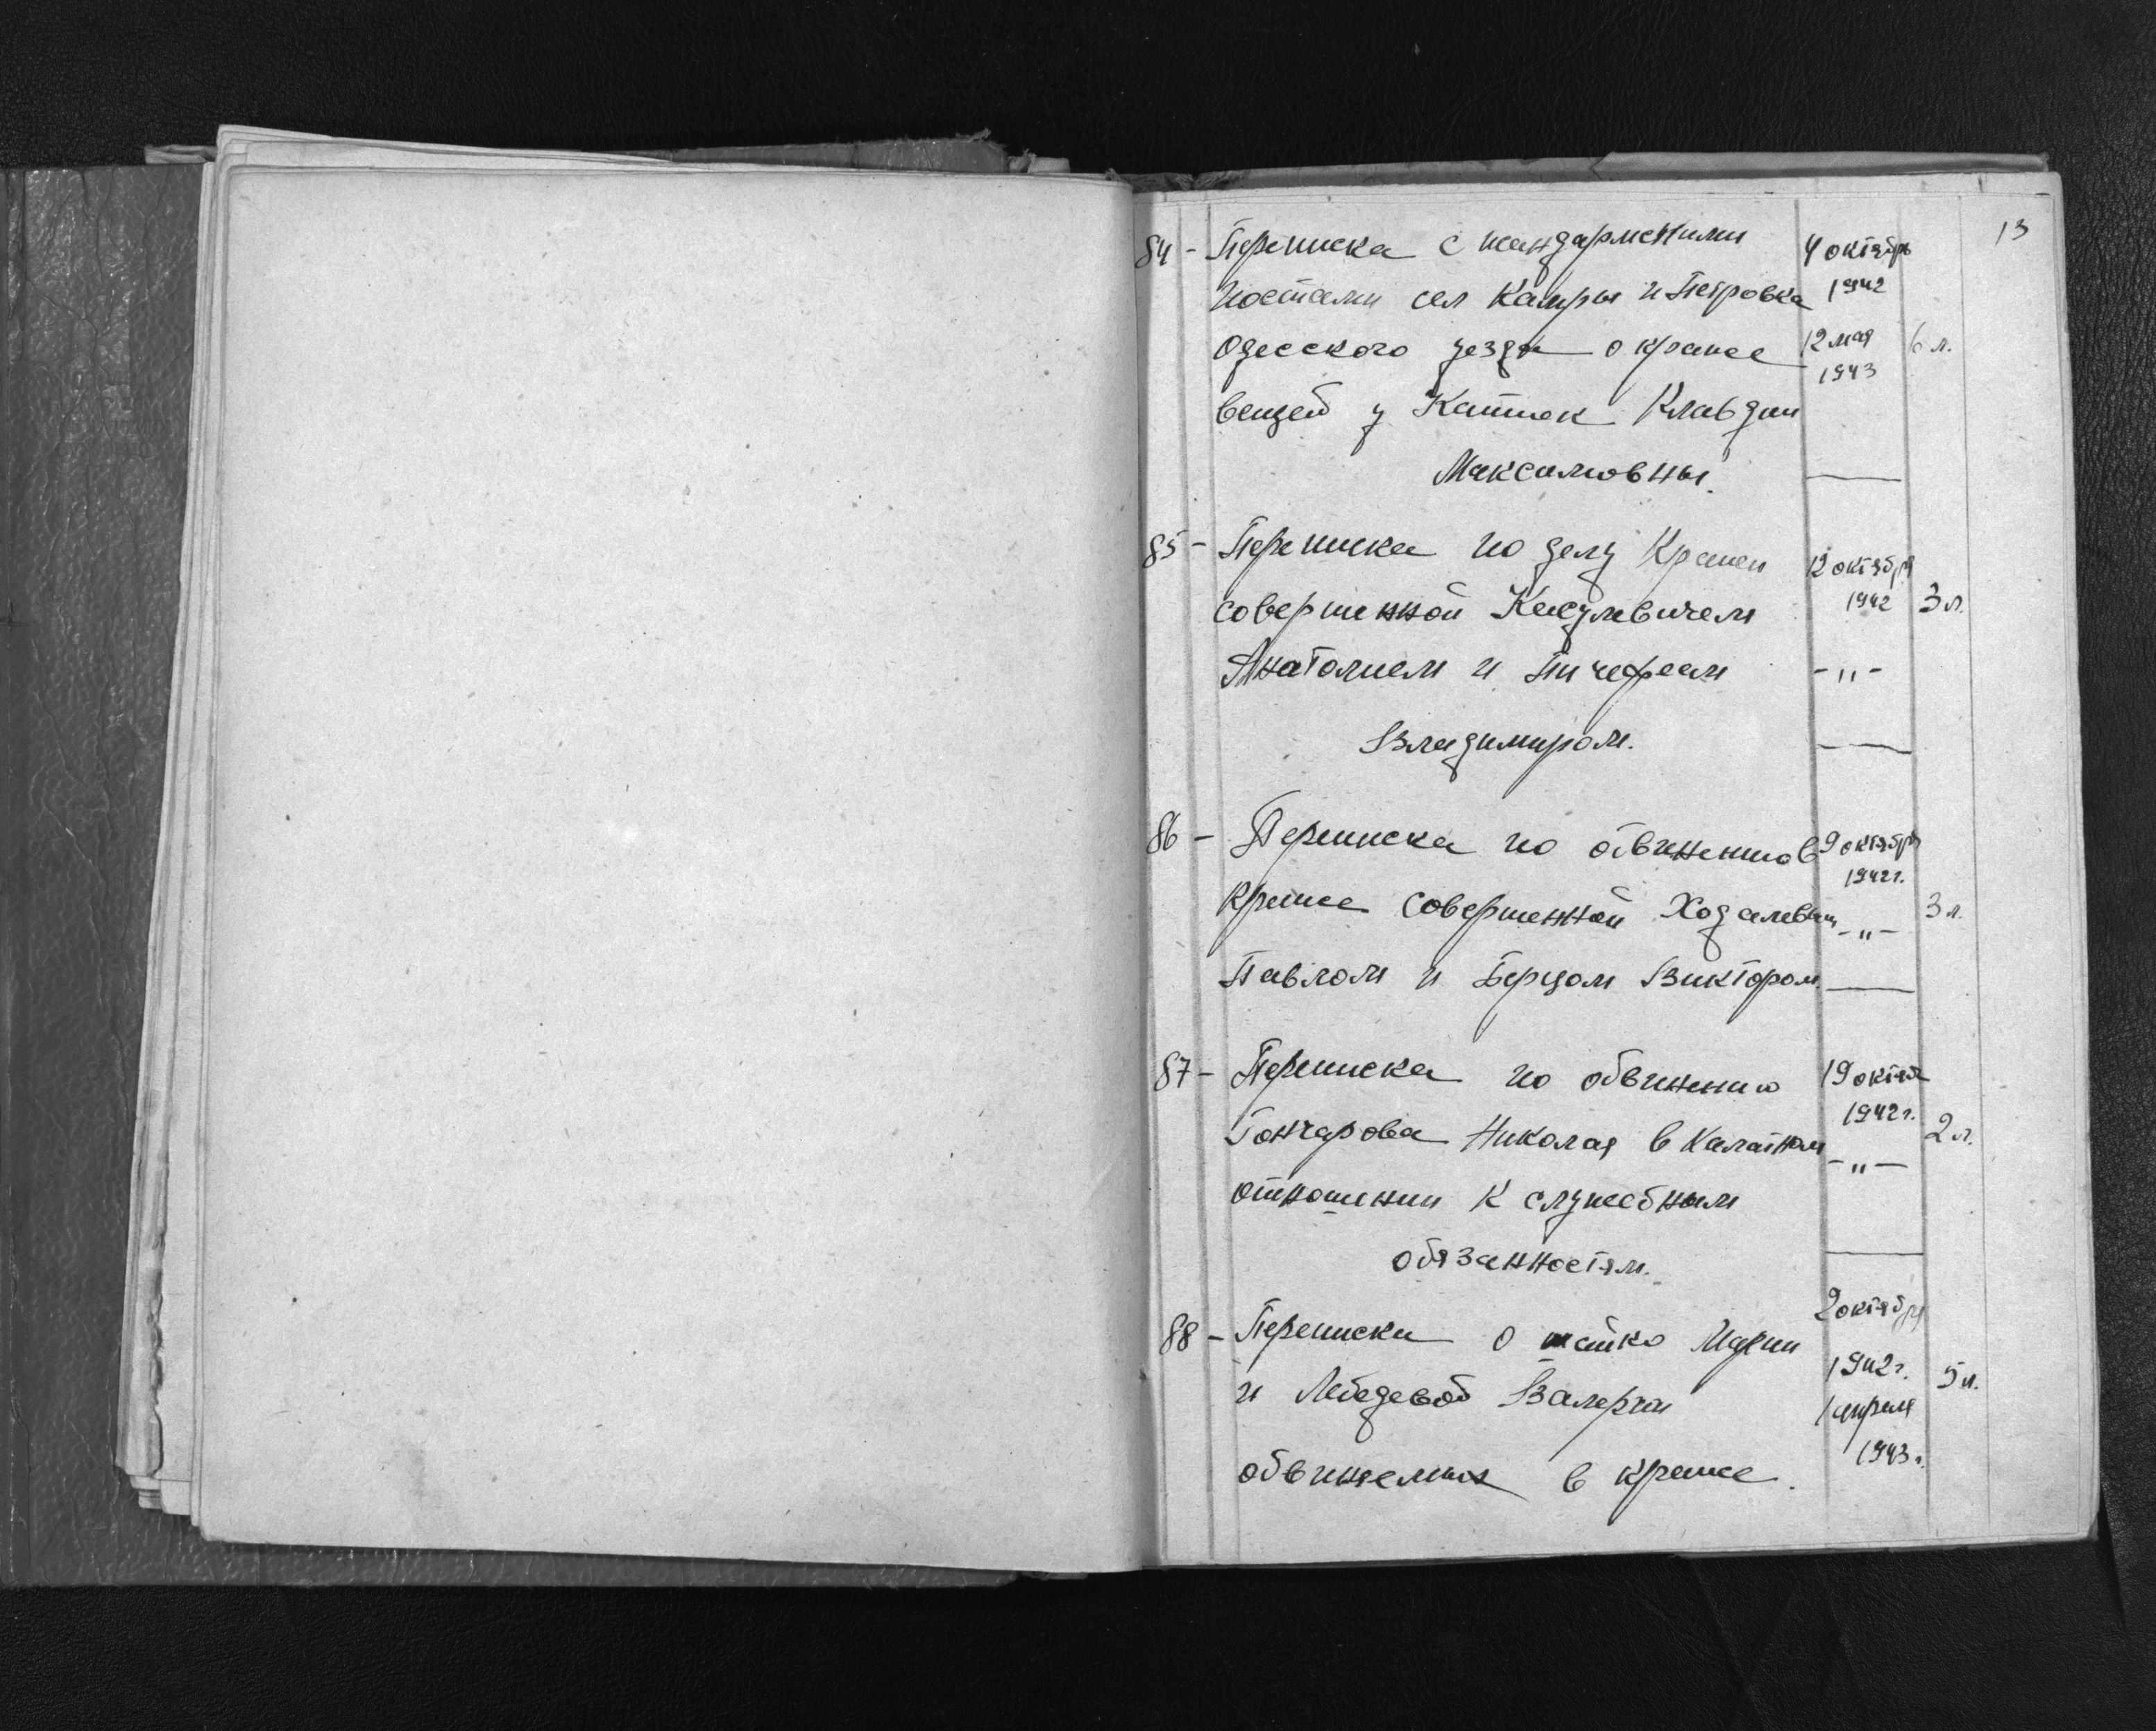 13
84 - Переписка с жандармскими 4 октябр
постами сел Каиры и Петровка 1942
Одесского уезда о краже 12 мая 6 л.
1943
вещей у Каппок Клавдии
Максимовны.
85 - Переписка по делу кражи 12 октября
совершенной 1942 3 л.
Анатолием и - " -
Владимиром.
86 - Переписка по обвинению в 9 октября
1942 г.
краже совершенной Ходалевич - " - 3 л.
Павлом и Берцом Виктором
87 - Переписка по обвинению 19 октяб
1942 г.
Гончарова Николая в халатном - " - 2 л.
отношении к служебным
обязанностям.
2 октября
88 - Переписка о Марии
1942 г. 5 л.
и Лебедевой Валерии
1 апреля
1943 г.
обвиняемых в краже.